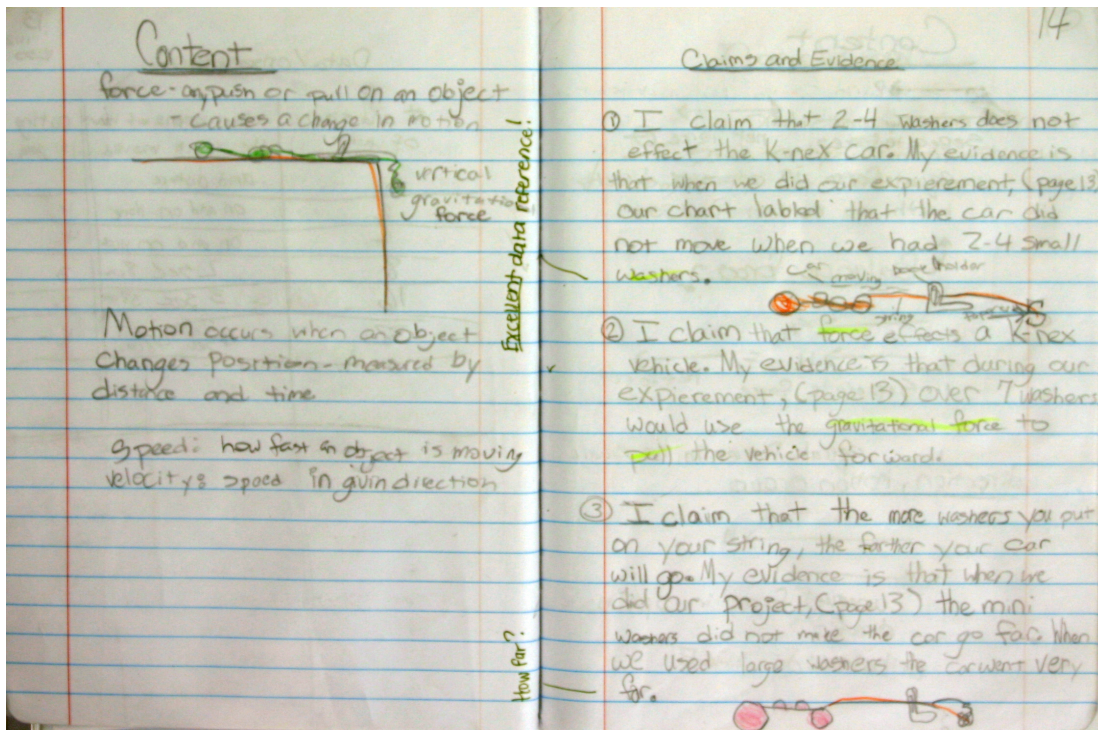 Content
force - any push or pull on an object
- causes a change in motion
vertical
gravitation
force
Motion occurs when an object
changes position - measured by
distance and time
Speed: how fast an object is moving
velocity: speed in givin direction
Excellent data reference!
How far?
14
Claims and Evidence
① I claim that 2-4 washers does not
effect the K-nex car. My evidence is
that when we did our expierement, (page 13
our chart labled that the car did
not move when we had 2-4 small
washers.
car
moving
string
holder
② I claim that force effects a K-nex
vehicle. My evidence is that during our
expierement, (page 13) over 7 washers
would use the gravitational force to
pull the vehicle forward.
③ I claim that the more washers you put
on your string, the farther your car
will go. My evidence is that when we
did our project, (page 13) the mini
washers did not make the car go far. When
we used large washers the car went very
far.